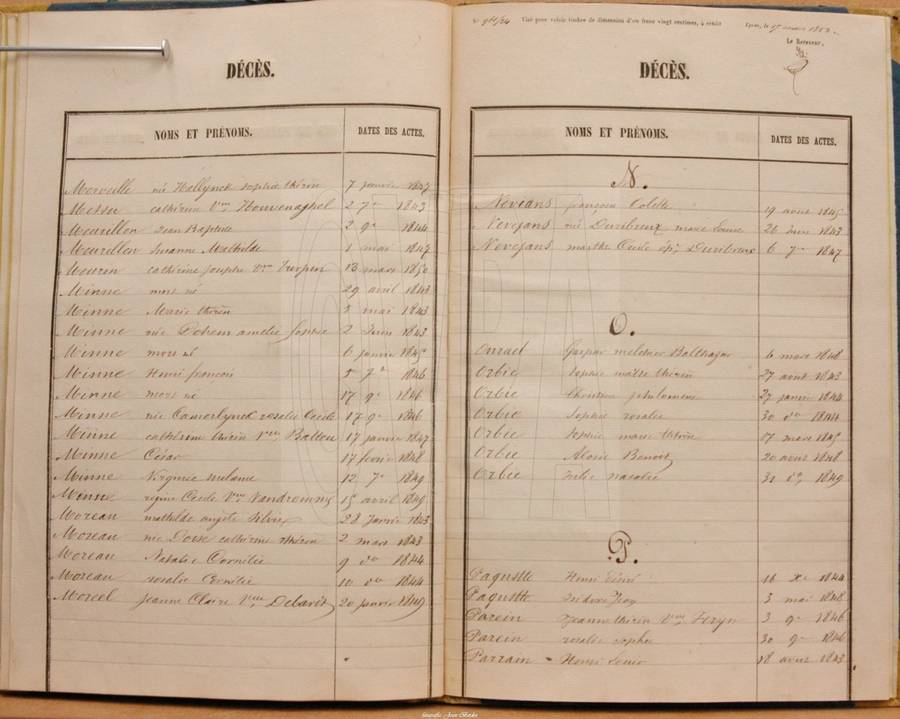 DÉCÈS.
NOMS ET PRÉNOMS. DATES DES ACTES.
Merveille née Hollynck Sophie thérèse 7 janvier 1847
catherine Vve Houvenaghel 2 7re 1843
Meurillon Jean Baptiste 2 9re 1844
Meurillon Susanne Mathilde 1 mars 1847
Meurin catherine josephe Vve Turpin 13 mars 1850
Minne mort né 29 avril 1843
Minne Marie thérèse 5 mai 1843
Minne née amelie Sophie 2 Juin 1843
Minne mort né 6 janvier 1845
Minne Henri francois 5 7re 1846
Minne mort né 17 9re 1846
Minne née Camerlynck rosalie Cecile 17 9re 1846
Minne catherine Vve 17 janvier 1847
Minne César 17 fevrier 1848
Minne Virginie melanie 12 7re 1849
Minne regine Cecile Vve 15 avril 1849
Moreau mathilde Silvie 28 Janvier 1843
Moreau née catherine thérèse 2 mars 1843
Moreau Natalie Cornelie 9 do 1844
Moreau rosalie Cornelie 10 do 1844
Moreel jeanne Claire Vve 20 janvier 1849
N° Visé pour valoir timbre de dimension d'un franc vingt centimes, à crédit
Ypres, le 17 1852
Le Receveur,
DÉCÈS.
NOMS ET PRÉNOMS. DATES DES ACTES.
N.
Nevejans francoise Colette 19 avril 1845
Nevejans née marie Louise 26 1843
Nevejans marthe Cecile 6 7re 1847
O.
Onraet Gaspar melchior Balthazar 6 mars 1848
Orbie Sophie thérèse 27 août 1843
Orbie philomene 27 janvier 1844
Orbie Sophie rosalie 30 do 1844
Orbie Sophie marie thérèse 17 mars 1845
Orbie Aloise Benoit 20 avril 1848
Orbie Julie natalie 31 do 1849
P.
Pagustte Henri 16 Xe 1844
Pagustte Isidore 3 mai 1848
Parein Jeanne thérèse Vve Feryn 3 9re 1846
Parein rosalie sophie 30 9re 1846
Parrain Henri Louis 18 avril 1843